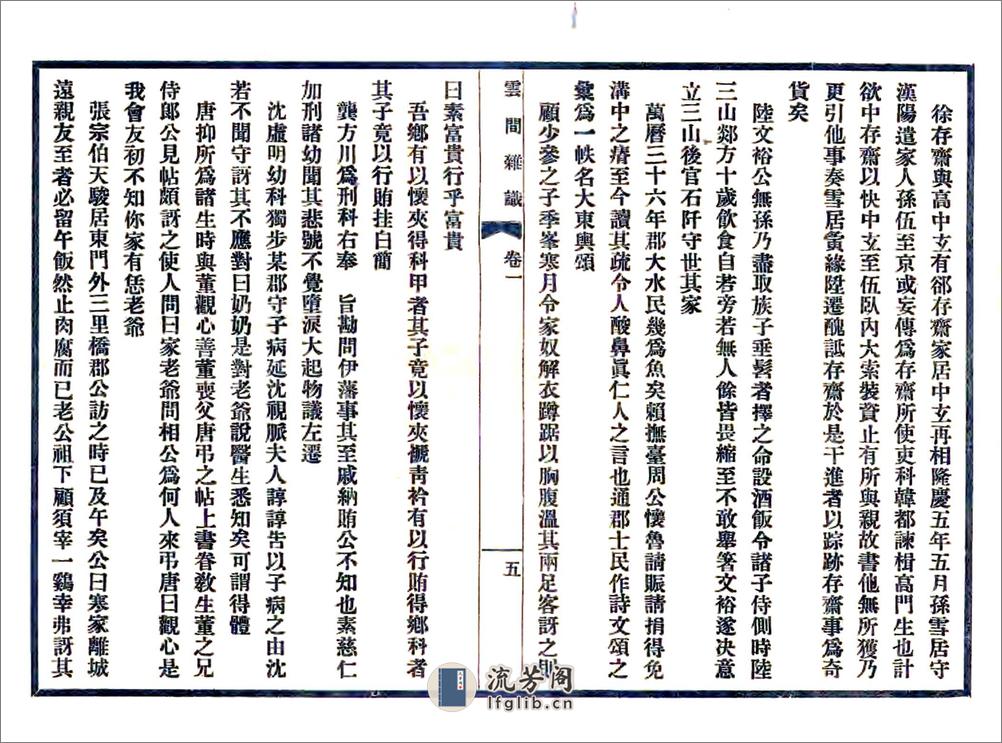 徐存齋與高中玄有郤存齋家居中玄再相隆慶五年五月孫雪居守
漢陽遣家人孫伍至京或妄傳爲存齋所使吏科韓都諫楫高門生也計
欲中存齋以快中玄至伍臥內大索裝資止有所與親故書他無所獲乃
更引他事奏雪居夤緣陞遷醜詆存齋於是干進者以踪跡存齋事爲奇
貨矣
陸文裕公無孫乃盡取族子垂髫者擇之命設酒飯令諸子侍側時陸
三山郯方十歲飲食自若旁若無人餘皆畏縮至不敢舉箸文裕遂决意
立三山後官石阡守世其家
萬曆三十六年郡大水民幾爲魚矣賴撫臺周公懷魯請賑請捐得免
溝中之瘠至今讀其疏令人酸鼻眞仁人之言也通郡士民作詩文頌之
彙爲一帙名大東輿頌
顧少參之子季峯寒月令家奴解衣蹲踞以胸腹溫其兩足客訝之則
雲間雜識 卷一 五
曰素富貴行乎富貴
吾鄉有以懷夾得科甲者其子竟以懷夾褫靑衿有以行賄得鄉科者
其子竟以行賄挂白簡
龔方川爲刑科右奉 旨勘問伊藩事其至戚納賄公不知也素慈仁
加刑諸幼聞其悲號不覺墮淚大起物議左遷
沈盧明幼科獨步某郡守子病延沈視脈夫人諄諄告以子病之由沈
若不聞守訝其不應對曰奶奶是對老爺說醫生悉知矣可謂得體
唐抑所爲諸生時與董觀心善董喪父唐弔之帖上書眷教生董之兄
侍郎公見帖頗訝之使人問曰家老爺問相公爲何人來弔唐曰觀心是
我會友初不知你家有恁老爺
張宗伯天駿居東門外三里橋郡公訪之時已及午矣公曰寒家離城
遠親友至者必留午飯然止肉腐而已老公祖下顧須宰一鷄幸弗訝其
流芳阁
lfglib.cn